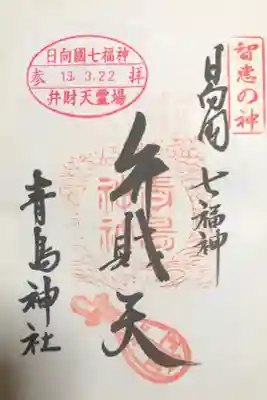 智恵の神
日向國
七福神
日向國七福神
参 13.3.22 拝
弁財天霊場
弁財天
青島神社